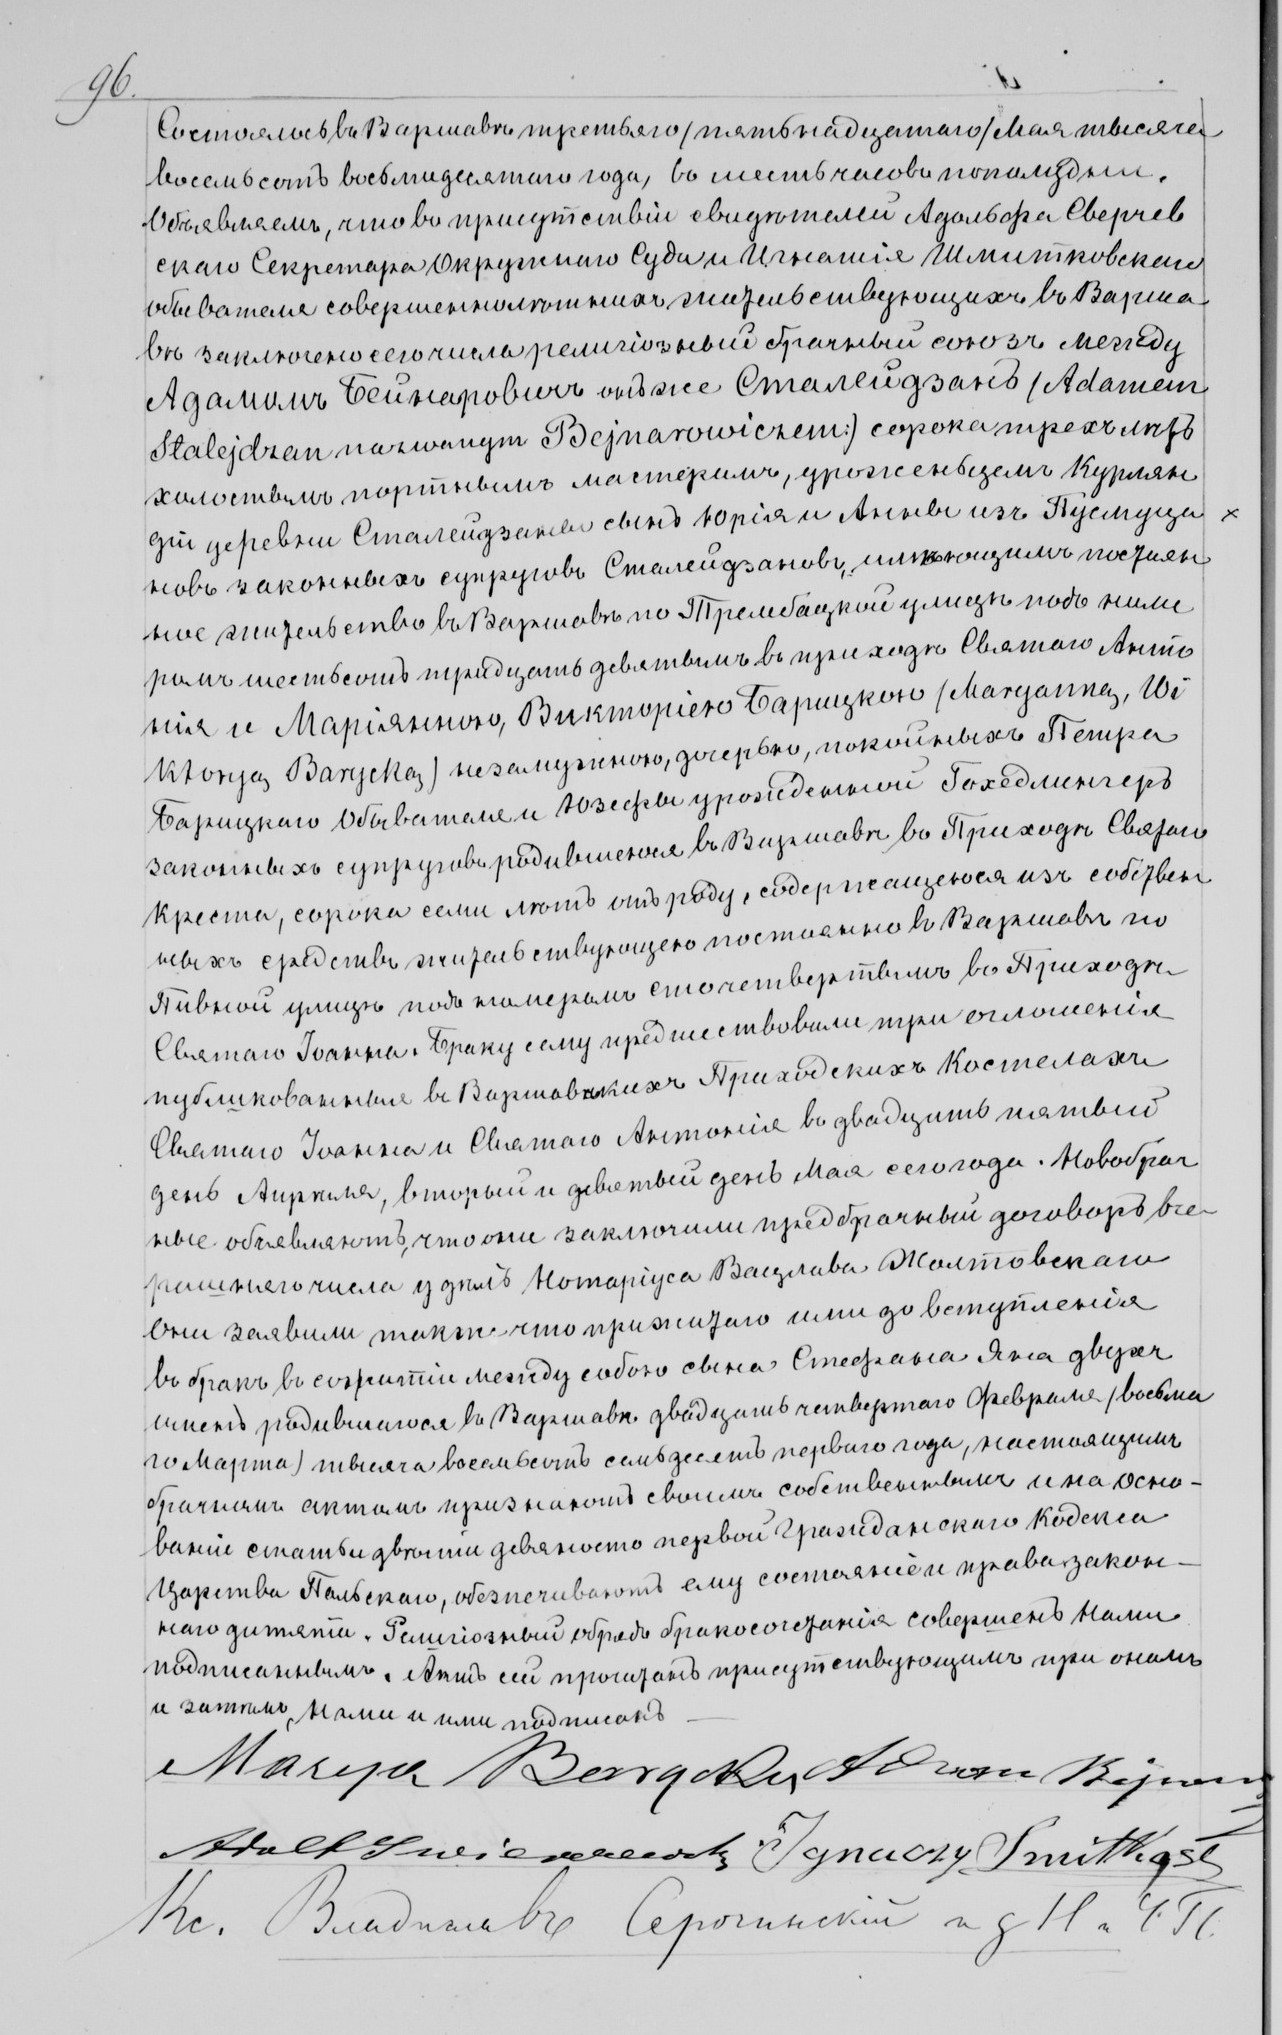 96.
Состоялось въ Варшавѣ третьяго /пятьнадцатаго/ Мая тысяча
восемьсотъ восьмидесятаго года, въ шесть часовъ пополудни.
Объявляемъ, что въ присутствіи свидѣтелей Адольфа Сверчев
скаго Секретара Окружнаго Суда и Игнатія Шмитковскаго
обывателя совершеннолѣтнихъ жительствующихъ въ Варша
вѣ заключено сего числа религіозный брачный союзъ между
Адамомъ Бейнаровичъ онъ же Сталейдзанъ /Adamem
Stalejdzan nazwanym Bejnarowiczem:/ сорока трехъ лѣтъ
холостымъ портнымъ мастеромъ, уроженьцемъ Курлян
діи деревни Сталейдзаны сынъ Юрія и Анны изъ Пусмуца ×
новъ законныхъ супруговъ Сталейдзановъ, имѣющимъ постоян
ное жительство въ Варшавѣ по Трембацкой улицѣ подъ номе
ромъ шестьсотъ тридцать девятымъ въ приходѣ Святаго Анто
нія и Маріянною, Викторіею Барицкою /Maryanną, Wi
ktoryą Barycką/ незамужною, дочерью, покойныхъ Петра
Барицкаго Обывателя и Юзефы урожденной Гохедлингеръ
законныхъ супруговъ родившеюся въ Варшавѣ въ Приходѣ Святаго
Креста, сорока семи лѣтъ отъ роду, содержащеюся изъ собствен
ныхъ средствъ жительствующею постоянно въ Варшавѣ по
Пивной улицѣ подъ номеромъ сто четвертымъ въ Приходѣ
Святаго Іоанна. Браку сему предшествовали три оглошенія
публикованныя въ Варшавскихъ Приходскихъ Костелахъ
Святаго Іоанна и Святаго Антонія въ двадцать пятый
день Апрѣля, вторый и девятый день Мая сего года. Новобрач
ные объявляютъ, что они заключили предбрачный договоръ вче
рашняго числа у дѣлъ Нотаріуса Вацлава Жолтовскаго
Они заявили также что прижитаго ими до вступленія
въ бракъ въ сожитіи между собою сына Стефана Яна двухъ
именъ родившагося въ Варшавѣ двадцать четвертаго Февраля /восьма
го Марта/ тысяча восемьсотъ семьдесятъ перваго года, настоящимъ
брачнымъ актомъ признаютъ своимъ собственнымъ и на осно-
ваніи статьи двѣсти девяносто первой Гражданскаго Кодекса
Царства Польскаго, обезпечиваютъ ему состояніе и права закон-
наго дитяти. Религіозный обрядъ бракосочетанія совершенъ нами
подписаннымъ. Актъ сей прочитанъ присутствующимъ при ономъ
и затѣмъ, нами и ими подписанъ —
Marya Barycka, Adam Bejnarow
Adolf Swierczewski Ignaczy Smitkosk
Кс. Владиславъ Серочинскій и д Н и Ч П.